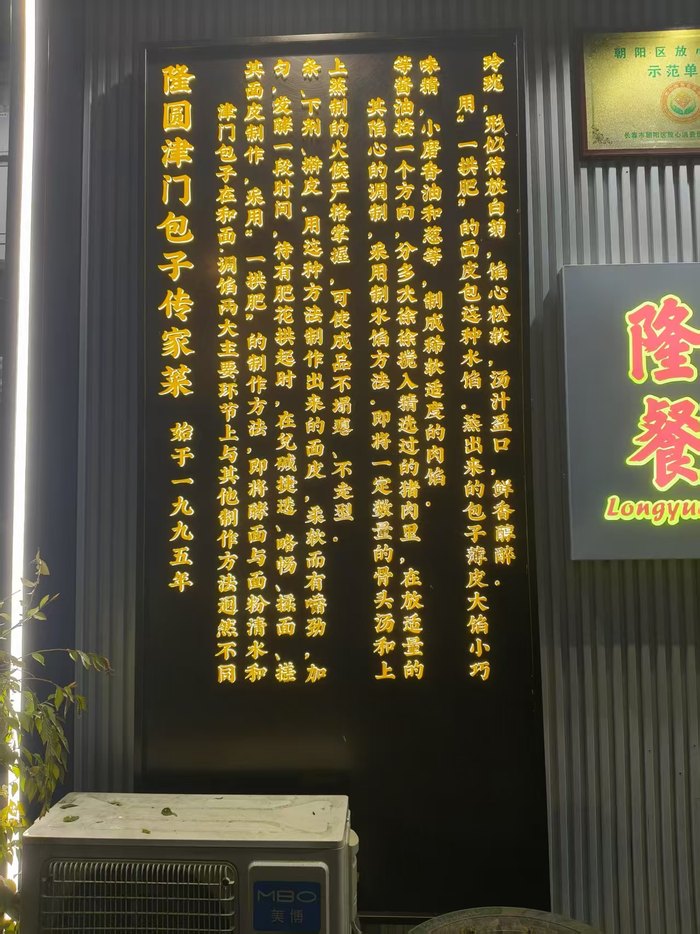 隆圆津门包子传家菜 始于一九九五年
津门包子在和面、调馅两大主要环节上与其他制作方法迥然不同
其面皮制作，采用“一拱肥”的制作方法，即将酵面与面粉清水和
匀，发酵一段时间，待有肥花拱起时，在兑碱揉透、略饧、揉面、搓
条、下剂、擀皮。用这种方法制作出来的面皮，柔软而有嚼劲，加
上蒸制的火候严格掌握，可使成品不塌、不走型。
其馅心的调制，采用制水馅方法。即将一定数量的骨头汤和上
等酱油按一个方向，分多次徐徐搅入精选过的猪肉里，在放适量的
味精，小磨香油和葱等，制成稀软适度的肉馅。
用“一拱肥”的面皮包这种水馅。蒸出来的包子薄皮大馅小巧
玲珑，形似待放白菊，馅心松软，汤汁盈口，鲜香醇醉。
朝阳区放心
示范单
长春市朝阳区放心消费
隆
餐
Longyu
MBO
美博